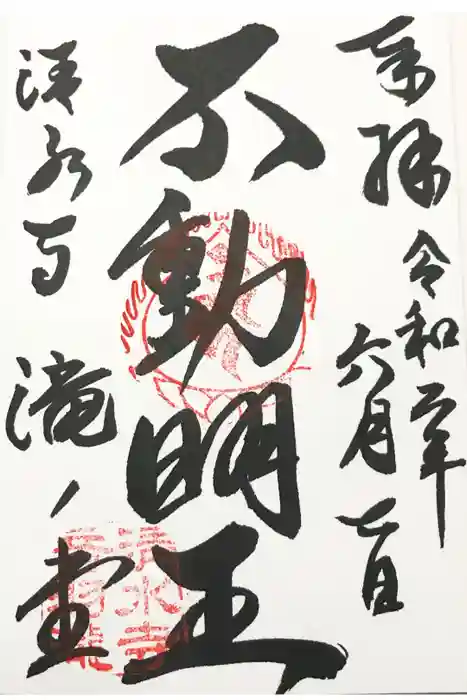 奉拝
令和二年
六月一日
不動明王
清水寺
滝ノ堂
清水寺